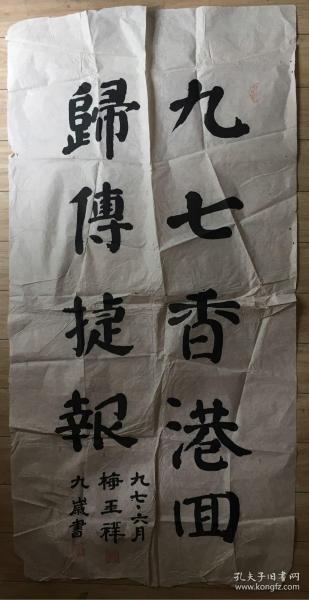 九七香港回
歸傳捷報
九七、六月
梅玉祥
九歲書
孔夫子旧书网
www.kongfz.com